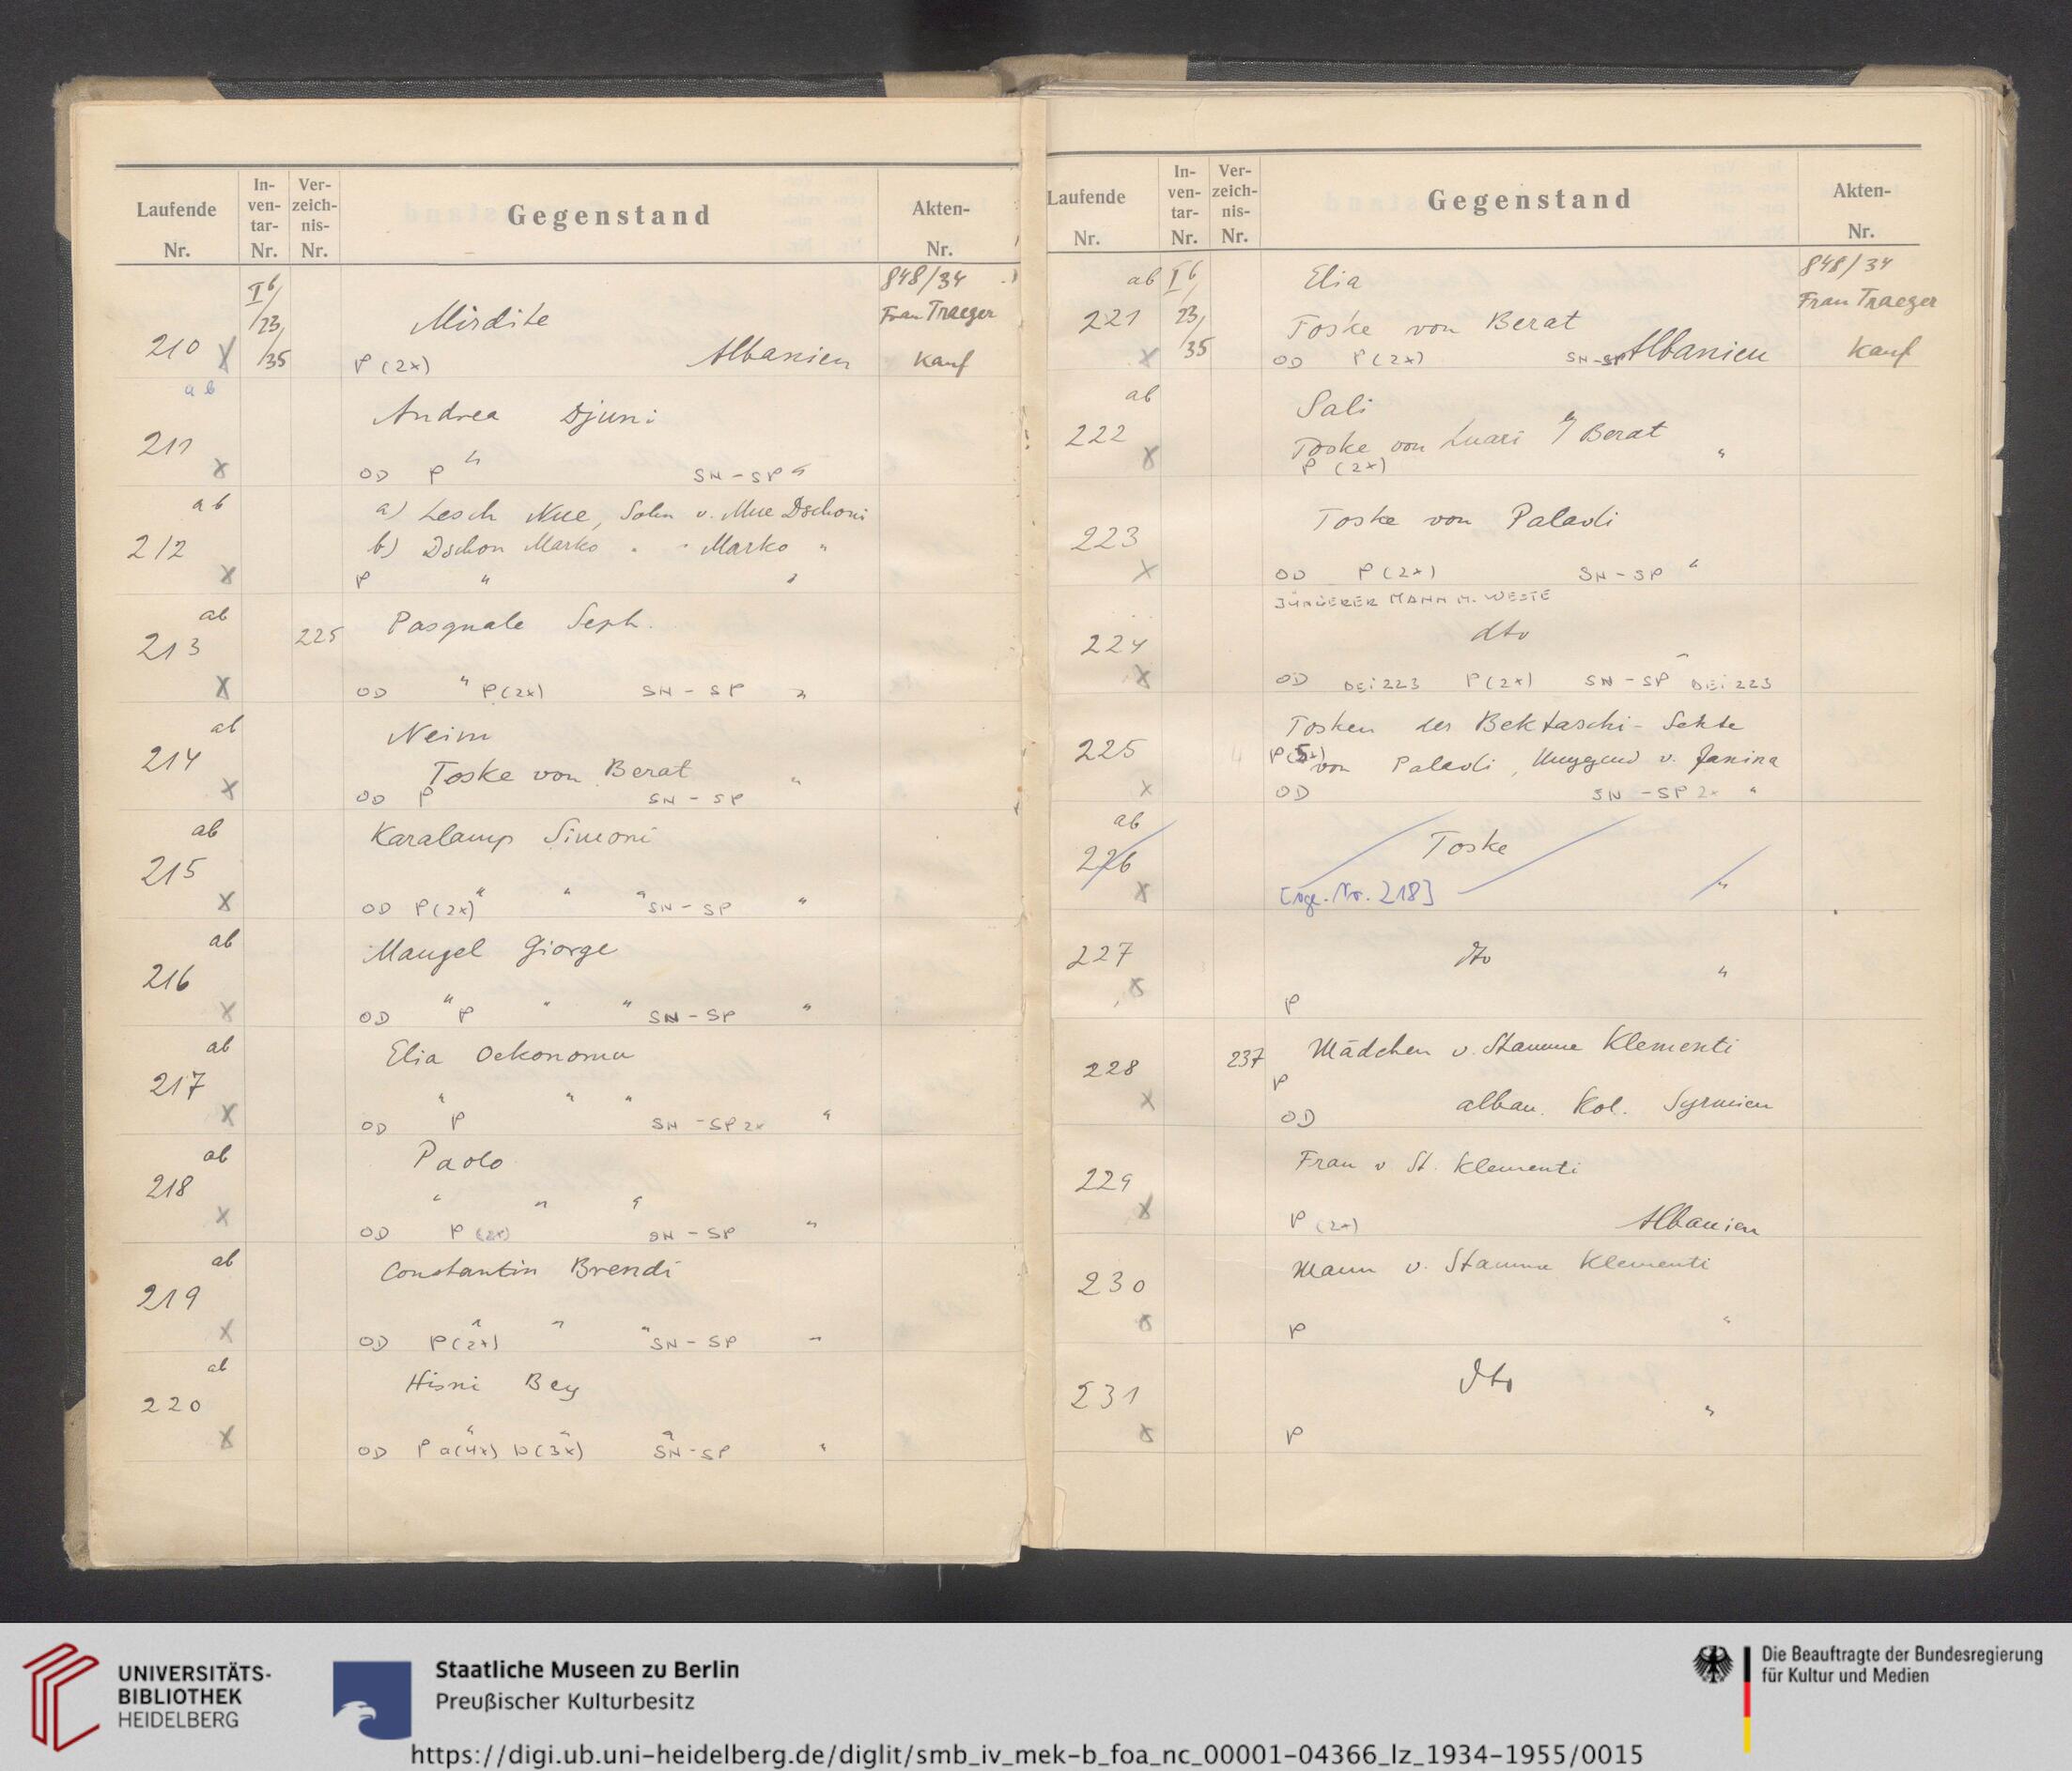 Laufende Nr. In-ven-tar-Nr. Ver-zeich-nis-Nr. Gegenstand Akten-Nr.
I b/ 848/34
/23/ Mirdite Frau Traeger
210 X /35 P (2x) Albanien Kauf
ab
Andrea Djuni
211
X OD P " SN - SP "
ab a) Lesch Nue, Sohn v. Mue Dschoni
212 b) Dschon Marko " " Marko "
X P " "
ab Pasquale Seph.
213 225
X OD " P(2x) SN - SP "
ab Neim
214 Toske von Berat "
X OD P SN - SP
ab Karalamp Simoni
215
X OD P(2x) " " " SN - SP "
ab Mangel Giorge
216
X OD " P " " SN - SP "
ab Elia Oekonomu
217 " " "
X OD P SN - SP 2x "
ab Paolo
218 " " "
X OD P (2x) SN - SP "
ab Constantin Brendi
219
X OD P(2x) " " " SN - SP "
ab Hisni Bey
220
X OD P a(4x) b(3x) " " " SN - SP "
Laufende Nr. In-ven-tar-Nr. Ver-zeich-nis-Nr. Gegenstand Akten-Nr.
ab I b/ Elia 848/34
Frau Traeger
221 23/ Toske von Berat
X 35 OD P(2x) SN - SP Albanien Kauf
ab Sali
222 Toske von Luari b/ Berat
X P (2x) "
Toske von Palavli
223
X OD P(2x) SN - SP "
JÜNGERER MANN M. WESTE
224 dto
X OD BEI 223 P(2x) SN - SP " BEI 223
Tosken der Bektaschi - Sekte
225 P(5x) von Palavli, Umgegend v. Janina
X OD SN - SP 2x "
ab Toske
226
X [vge. Nr. 218] "
227 dto "
X P
228 237 Mädchen v. Stamme Klementi
P
X OD alban. Kol. Syrmien
Frau v St. Klementi
229
X P (2x) Albanien
Mann v. Stamme Klementi
230
X P "
dto
231 "
X P
UNIVERSITÄTS-
BIBLIOTHEK
HEIDELBERG
Staatliche Museen zu Berlin
Preußischer Kulturbesitz
Die Beauftragte der Bundesregierung
für Kultur und Medien
https://digi.ub.uni-heidelberg.de/diglit/smb_iv_mek-b_foa_nc_00001-04366_lz_1934-1955/0015